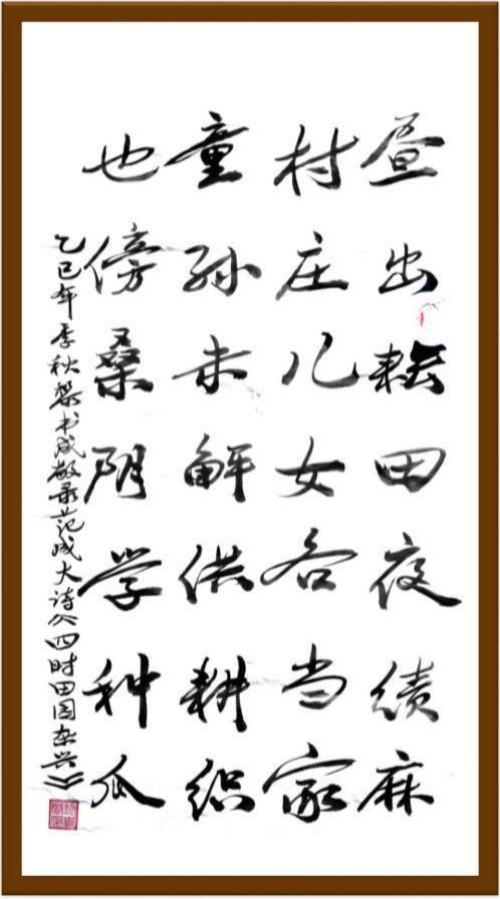 昼出耘田夜绩麻
村庄儿女各当家
童孙未解供耕织
也傍桑阴学种瓜
乙巳年季秋黎书成敬录范成大诗《四时田园杂兴》